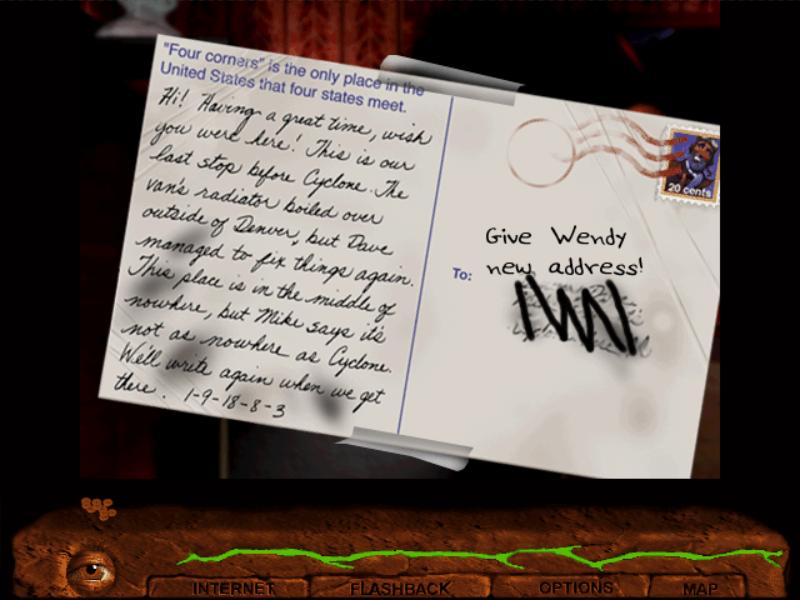 "Four corners" is the only place in the
United States that four states meet.
Hi! Having a great time, wish
you were here! This is our
last stop before Cyclone. The
van's radiator boiled over
outside of Denver, but Dave
managed to fix things again.
This place is in the middle of
nowhere, but Mike says it's
not as nowhere as Cyclone.
We'll write again when we get
there. 1-9-18-8-3
20 cents
Give Wendy
new address!
To:
INTERNET
FLASHBACK
OPTIONS
MAP